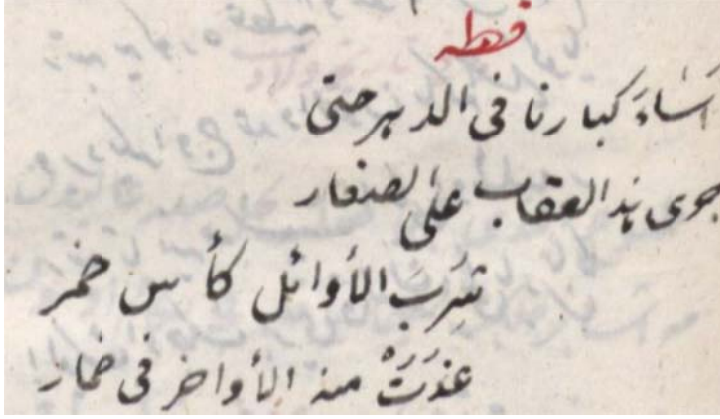 قطعه
اساءَ كبارنا فى الدهر حتى
جرى هذا العقاب على الصغار
شَرِبَ الأوائل كأس خمر
غدَتْ منه الأواخر فى خمار